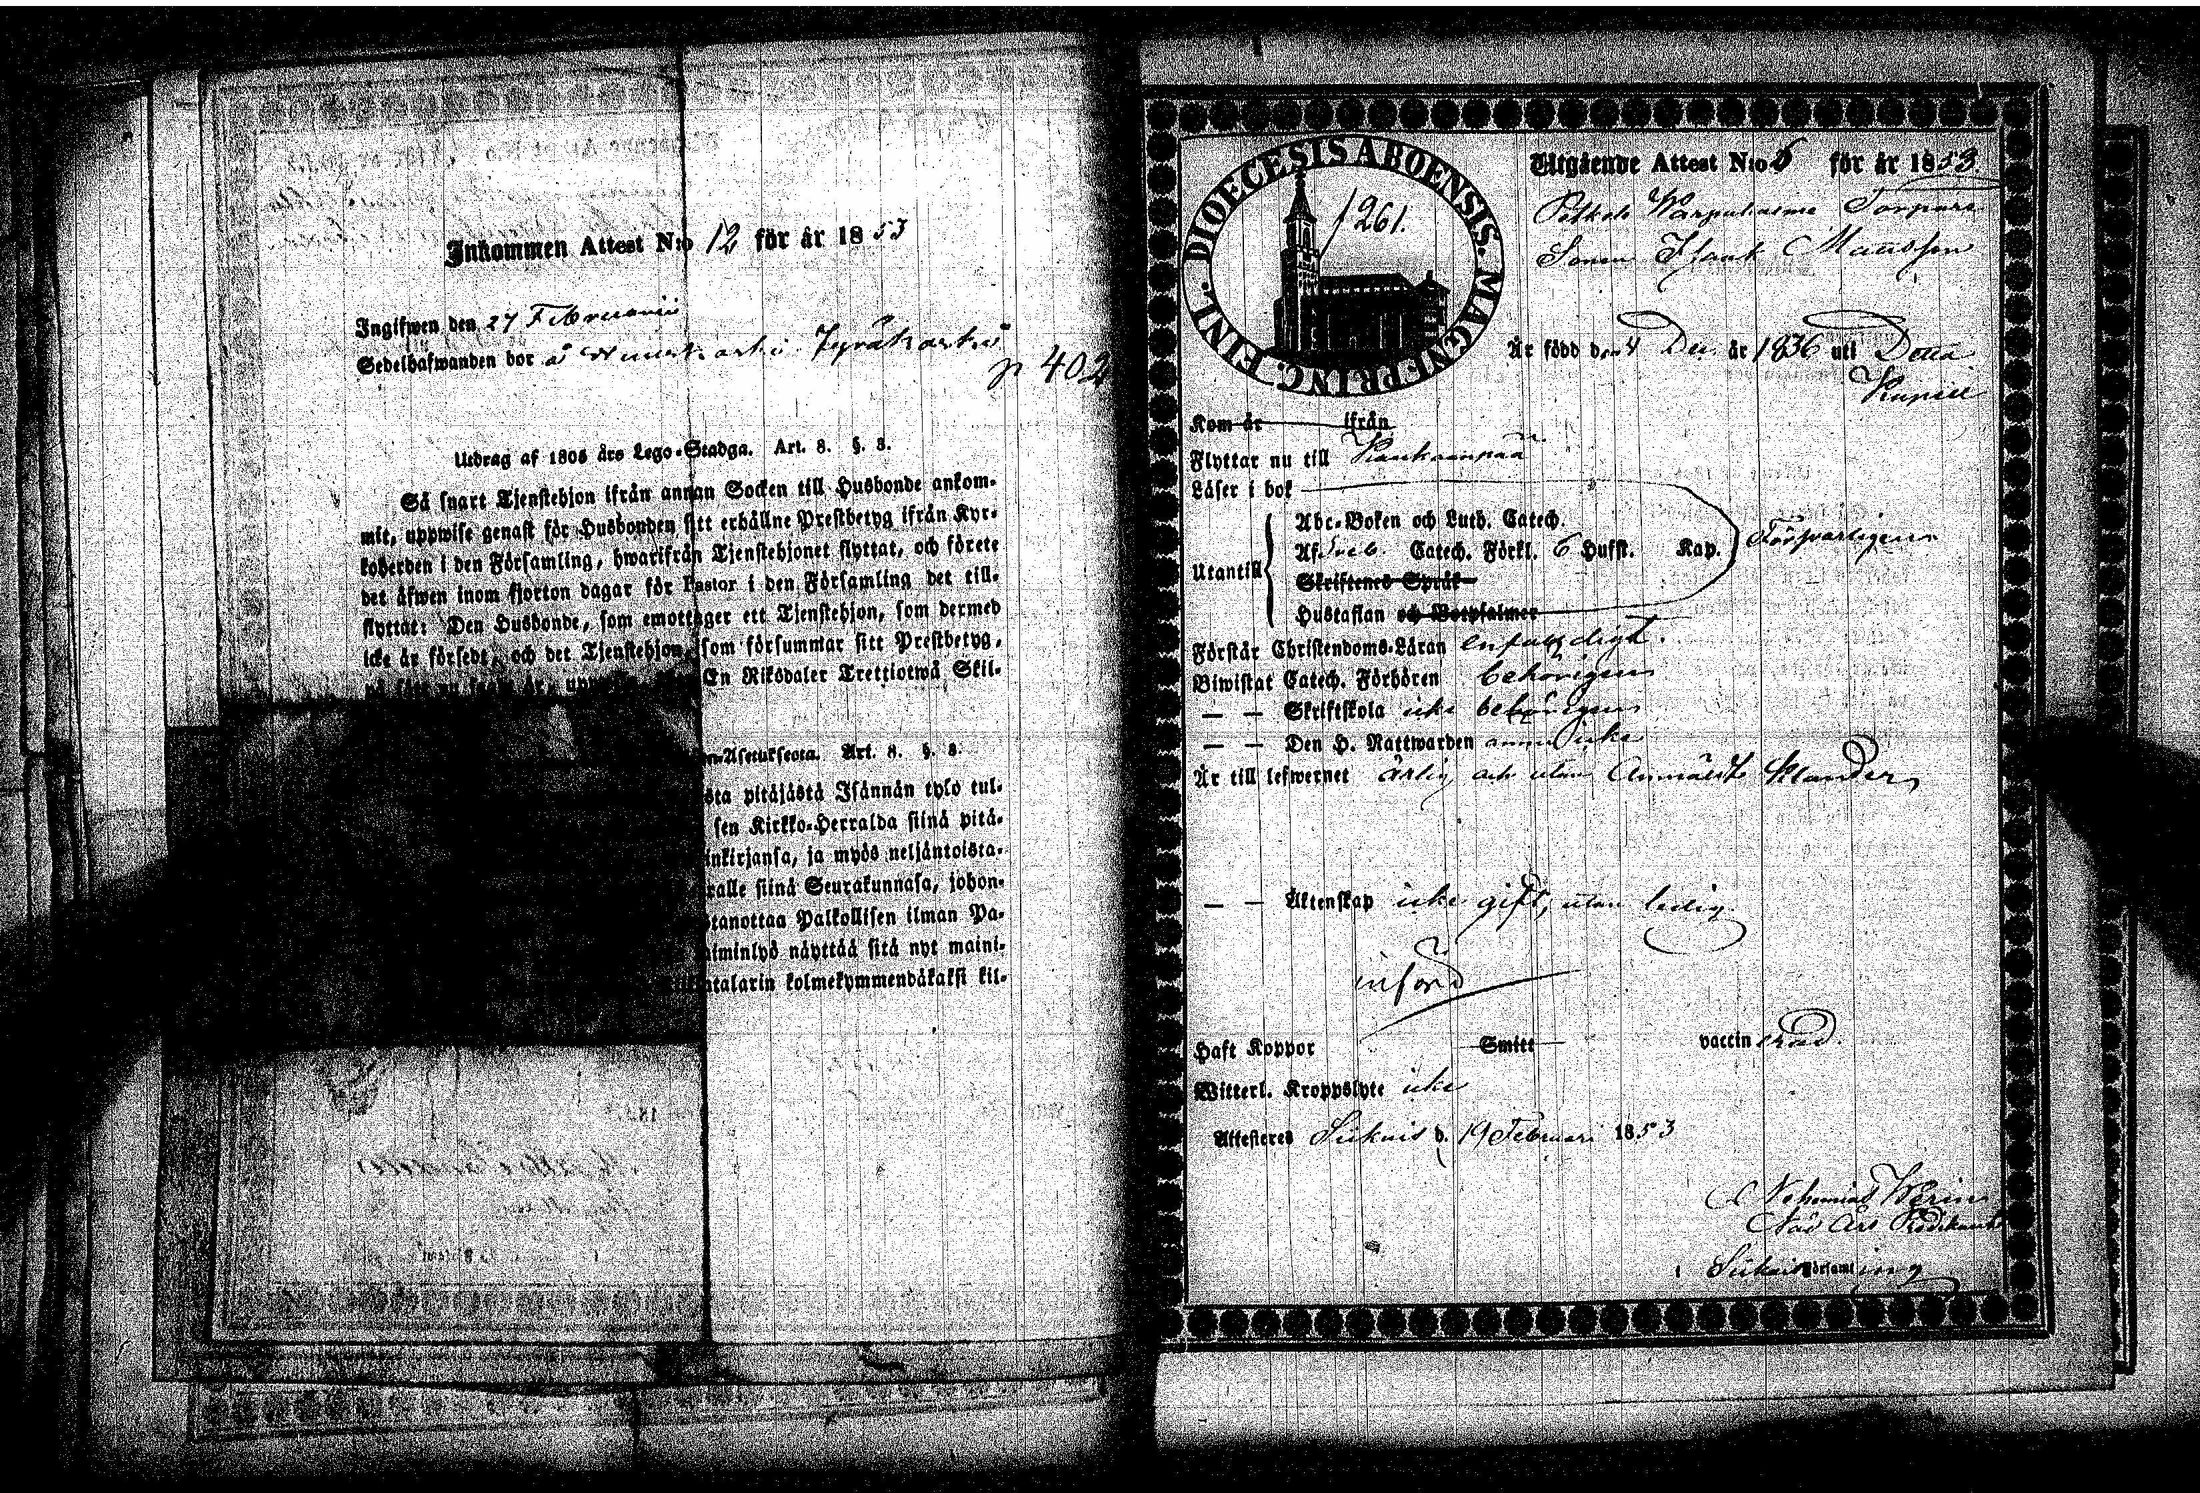 Inkommen Attest N:o 12 för år 1853
Ingifwen den 27 Februarii
Sedelhafwanden bor å
p 402
Utdrag af 1805 års Lego-Stadga. Art. 8. §. 8.
Så snart Tjenstehjon ifrån annan Socken till Husbonde ankom-
mit, uppwise genast för Husbonden sitt erhållne Prestbetyg ifrån Kyr-
koherden i den Församling, hwarifrån Tjenstehjonet flyttat, och förete
det åfwen inom fjorton dagar för Pastor i den Församling det till-
flyttat: Den Husbonde, som emottager ett Tjenstehjon, som dermed
icke är försedt, och det Tjenstehjon, som försummar sitt Prestbetyg,
En Riksdaler Trettiotwå Skil-
n-Asetuksesta. Art. 8. §. 8.
sta pitäjästä Isännän tylö tul-
sen Kirkko-Herralda siinä pitä-
inkirjansa, ja myös neljäntoista-
ralle siinä Seurakunnasa, johon-
stanottaa Palkollisen ilman Pa-
aiminlyö näyttää sitä nyt maini-
talarin kolmekymmendäkaksi kil-
DIOECESIS ABOENSIS. MAGNI PRINC. FINL.
1261.
Utgående Attest N:o 6 för år 1853.
Torpare
Sonen Isaak Mattsson
Är född den 4 Dec. år 1836 uti Detta
Kapell
Kom år ifrån
Flyttar nu till Kankaanpää
Läser i bok
Utantill
Abc-Boken och Luth. Catech.
Af Sveb. Catech. Förkl. 6 Hufst. Kap.
Försvarligen
Skriftenes Språk
Hustaflan och Botpsalmer
Förstår Christendoms-Läran enfaldigt.
Biwistat Catech. Förhören behörigen
— — Skriftskola icke behörigen
— — Den H. Nattwarden ännu icke
Är till lefwernet ärlig och utan Anmäldt klander,
— — Äktenskap icke gift, utan ledig.
införd
Haft Koppor Smitt vaccinerad.
Witterl. Kroppslyte icke
Attesteras Siikais d. 19 Februari 1853
Nehemias
Siikais Församling